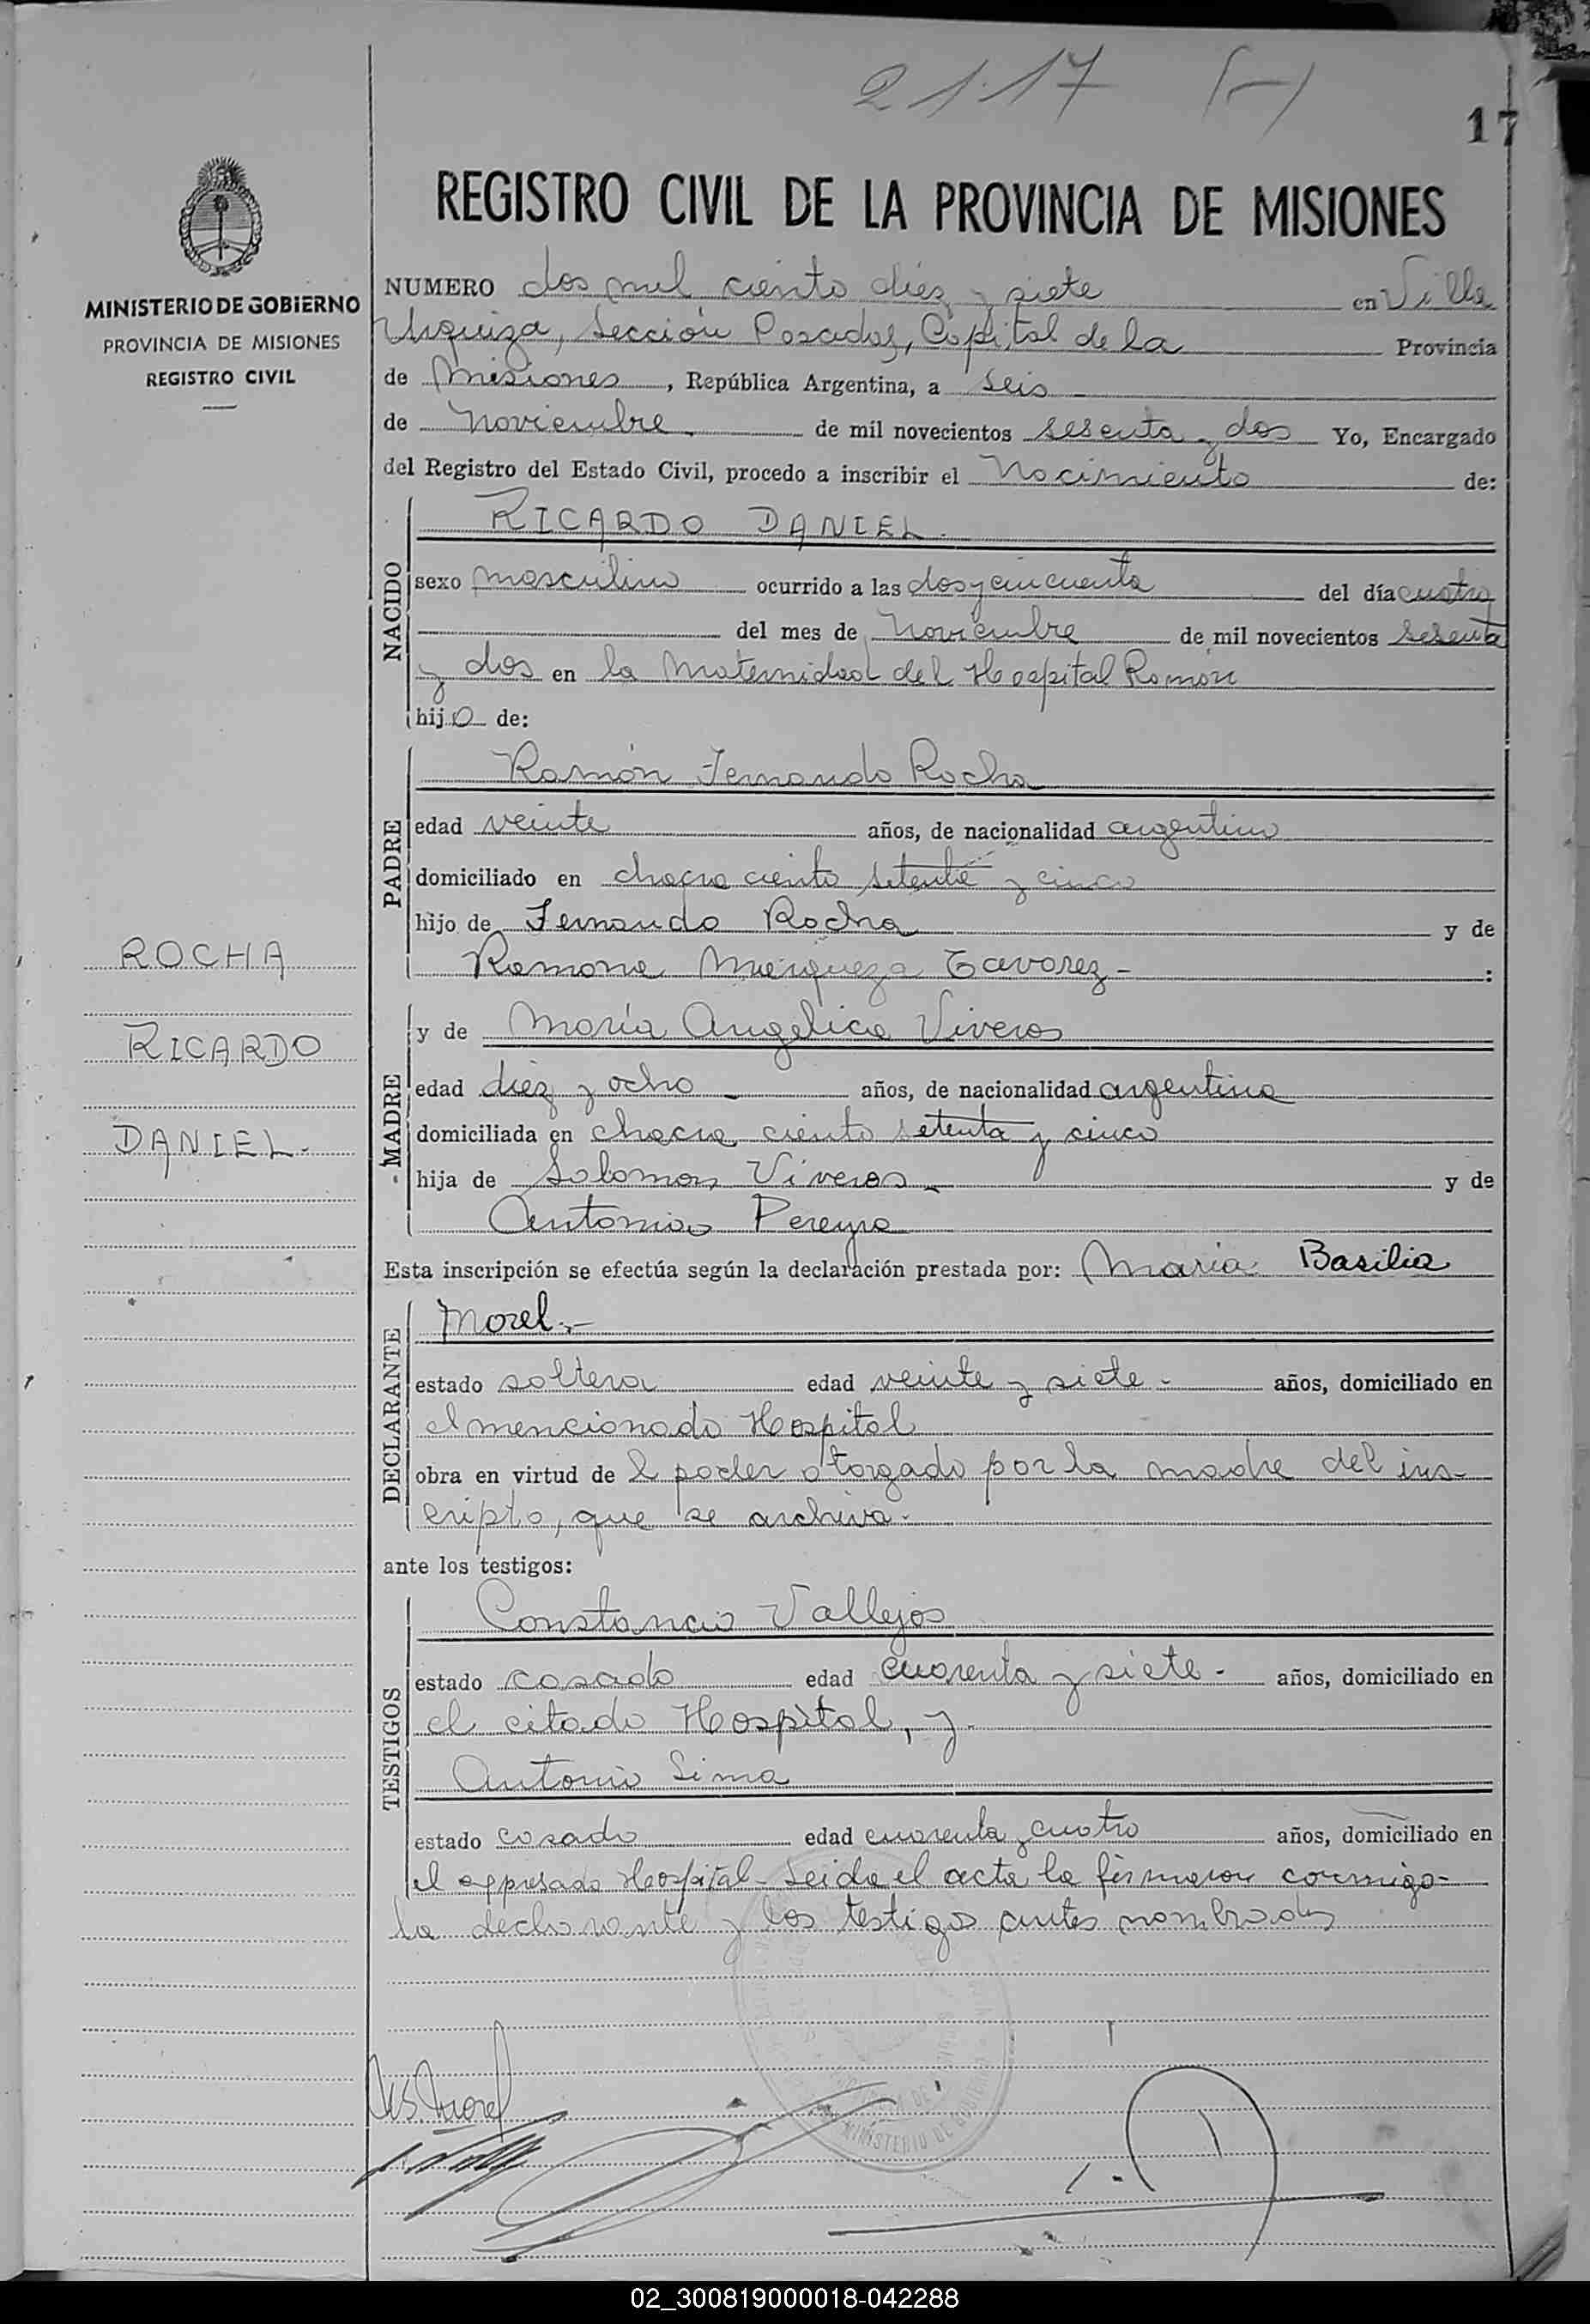 2117 (-)
17
REGISTRO CIVIL DE LA PROVINCIA DE MISIONES
MINISTERIO DE GOBIERNO
PROVINCIA DE MISIONES
REGISTRO CIVIL
NUMERO dos mil ciento diez y siete en Villa
Urquiza, Sección Posadas, Capital de la Provincia
de Misiones, República Argentina, a seis
de Noviembre de mil novecientos sesenta y dos Yo, Encargado
del Registro del Estado Civil, procedo a inscribir el Nacimiento de:
NACIDO
RICARDO DANIEL.
sexo masculino ocurrido a las dos y cincuenta del día cuatro
del mes de Noviembre de mil novecientos sesenta
y dos en la Maternidad del Hospital Ramón
hijo de:
PADRE
Ramón Fernando Rocha
edad veinte años, de nacionalidad argentino
domiciliado en chacra ciento setenta y cinco
hijo de Fernando Rocha y de
Ramona Tavarez - :
ROCHA
RICARDO
DANIEL.-
MADRE
y de María Angelica Viveros
edad diez y ocho - años, de nacionalidad argentina
domiciliada en chacra ciento setenta y cinco
hija de Solomon Viveros - y de
Antonia Pereyra
Esta inscripción se efectúa según la declaración prestada por: Maria Basilia
DECLARANTE
Morel.-
estado soltera edad veinte y siete - años, domiciliado en
el mencionado Hospital
obra en virtud de l poder otorgado por la madre del ins-
cripto, que se archiva.
ante los testigos:
TESTIGOS
Constancio Vallejos
estado casado edad cuarenta y siete - años, domiciliado en
el citado Hospital, y.
Antonio Lima
estado casado edad cuarenta y cuatro años, domiciliado en
el expresado Hospital - Leida el acta la firmaron conmigo-
la declarante y los testigos antes nombrados
MINISTERIO DE GOBIERNO
Morel
02_300819000018-042288